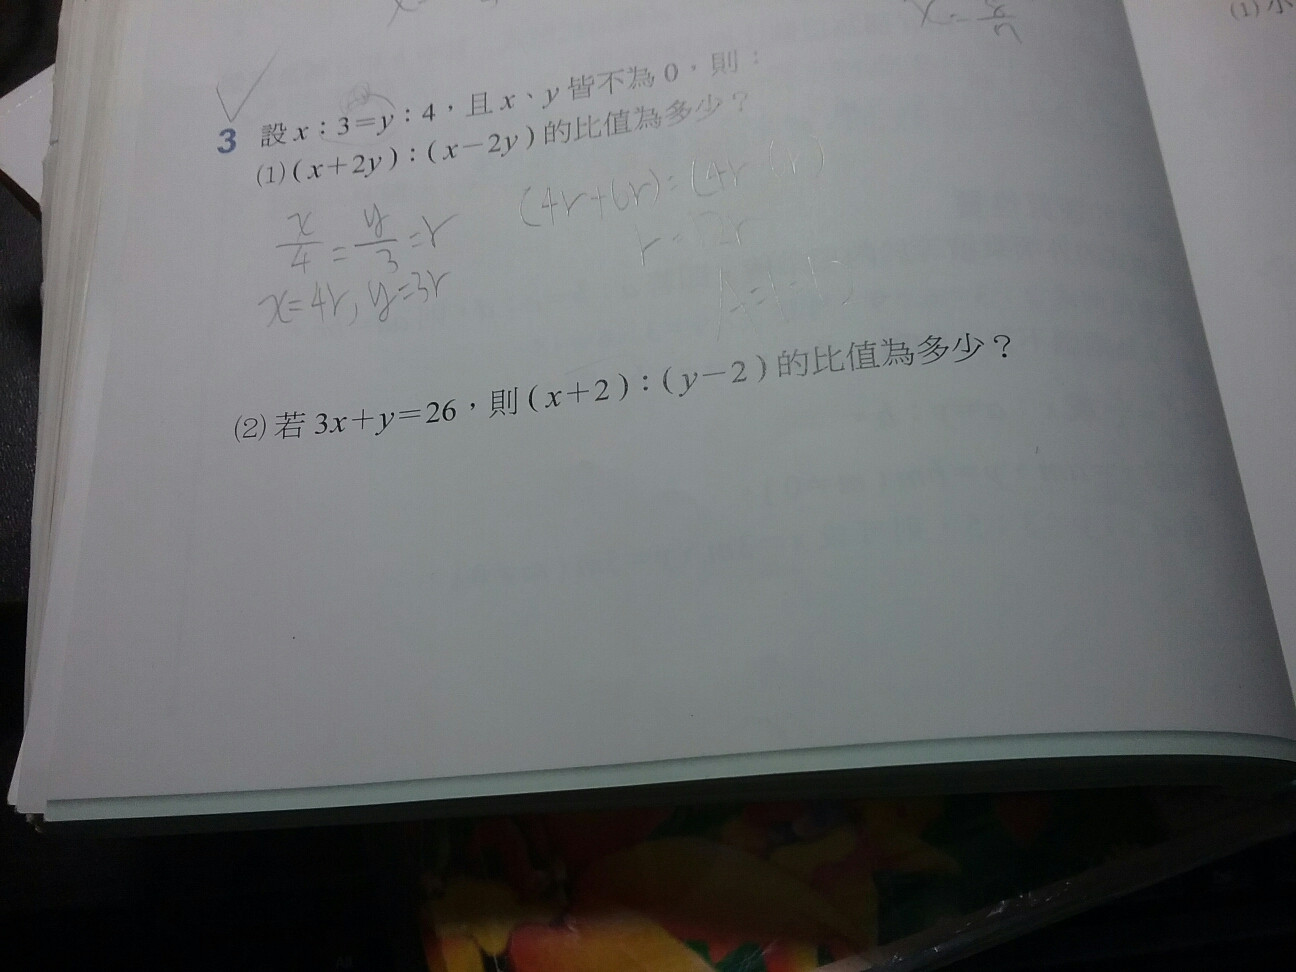 3 設 x：3＝y：4，且 x、y 皆不為 0，則：
(1) (x＋2y)：(x－2y) 的比值為多少？
x/4 = y/3 = r
(4r+6r)=(4r-6r)
x=4r, y=3r
(2) 若 3x＋y＝26，則 (x＋2)：(y－2) 的比值為多少？
(1)